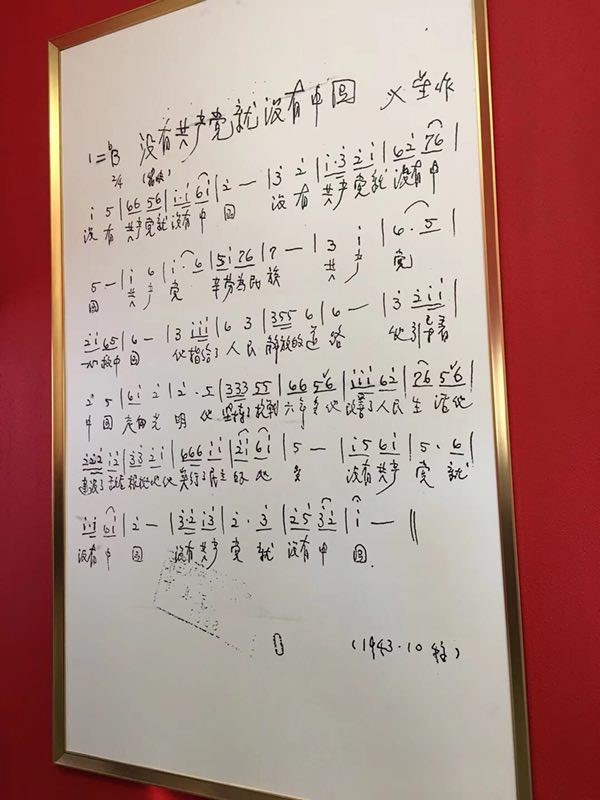 没有共产党就没有中国 火星作
1=♭B
2/4
i 5 | 66 56 | i·i 6i | 2̇ — | 3̇ 2̇ | i·3̇ 2̇i | 62̇ 76 |
没有共产党就没有中国 没有共产党就没有中
5 — | i 6 | i·6 | 5i 76 | 7 — | 3 i | 6·5 |
国 共产党 辛劳为民族 共产党
2̇i 65 | 6 — | 3 iii | 6 3 | 355 6 | 6 — | 3̇ 2̇ii |
一心救中国 他指给了人民解放的道路 他引导着
2̇ 5 | 6i 2̇ | 2̇·5 | 333 55 | 66 56 | iii 62̇ | 76 56 |
中国走向光明 他坚持了抗战六年多 他改善了人民生活 他
2̇2̇2̇2̇ i2̇ | 3̇3̇ 2̇i | 666 ii | 2̇i 6i | 5 — | i5 6i | 5·6 |
建设了敌后根据地 他实行了民主的好处多 没有共产党就
i·i 6i | 2̇ — | 3̇·2̇ i3̇ | 2̇·3̇ | 2̇5 3̇2̇ | i — ‖
没有中国 没有共产党就没有中国.
(1943.10 稿)